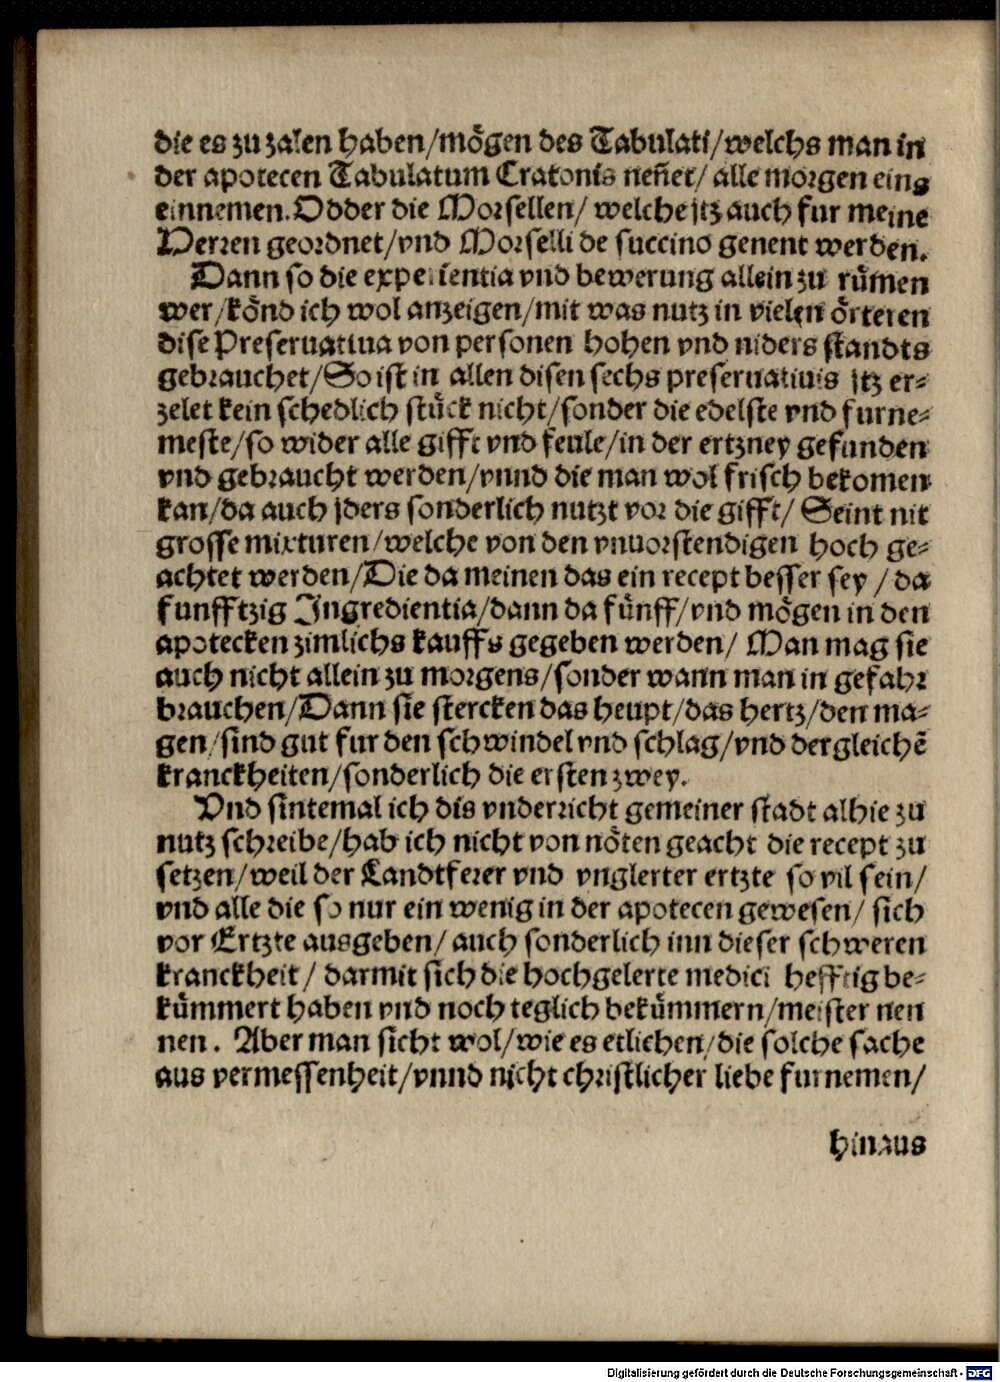 die es zu zalen haben/mo᷑gen des Tabulati/welchs man in
der apotecen Tabulatum Cratonis neñet/ alle morgen eins
einnemen. Odder die Morsellen/ welche jtz auch fur meine
Herren geordnet/vnd Morselli de succino genent werden.
Dann so die experientia vnd bewerung allein zu růmen
wer/kőnd ich wol anzeigen/mit was nutz in vielen őrteren
dise Preseruatiua von personen hohen vnd niders standts
gebrauchet/So ist in allen disen sechs preseruatiuis jtz er-
zelet kein schedlich stůck nicht/sonder die edelste vnd furne-
meste/so wider alle gifft vnd feule/in der ertzney gefunden
vnd gebraucht werden/vnnd die man wol frisch bekomen
kan/da auch jders sonderlich nutzt vor die gifft/ Seint nit
grosse mixturen/welche von den vnuorstendigen hoch ge-
achtet werden/Die da meinen das ein recept besser sey/da
funfftzig Ingredientia/dann da fůnff/vnd mőgen in den
apotecken zimlichs kauffs gegeben werden/ Man mag sie
auch nicht allein zu morgens/sonder wann man in gefahr
brauchen/Dann sie stercken das heupt/das hertz/den ma-
gen/sind gut fur den schwindel vnd schlag/vnd dergleichē
kranckheiten/sonderlich die ersten zwey.
Vnd sintemal ich dis vnderricht gemeiner stadt alhie zu
nutz schreibe/hab ich nicht von nőten geacht die recept zu
setzen/weil der Landtferer vnd vnglerter ertzte so vil sein/
vnd alle die so nur ein wenig in der apotecen gewesen/ sich
vor Ertzte ausgeben/ auch sonderlich inn dieser schweren
kranckheit/ darmit sich die hochgelerte medici hefftig be-
kůmmert haben vnd noch teglich bekůmmern/meister nen
nen. Aber man sicht wol/wie es etlichen/die solche sache
aus vermessenheit/vnnd nicht christlicher liebe furnemen/
hinaus
Digitalisierung gefördert durch die Deutsche Forschungsgemeinschaft - DFG